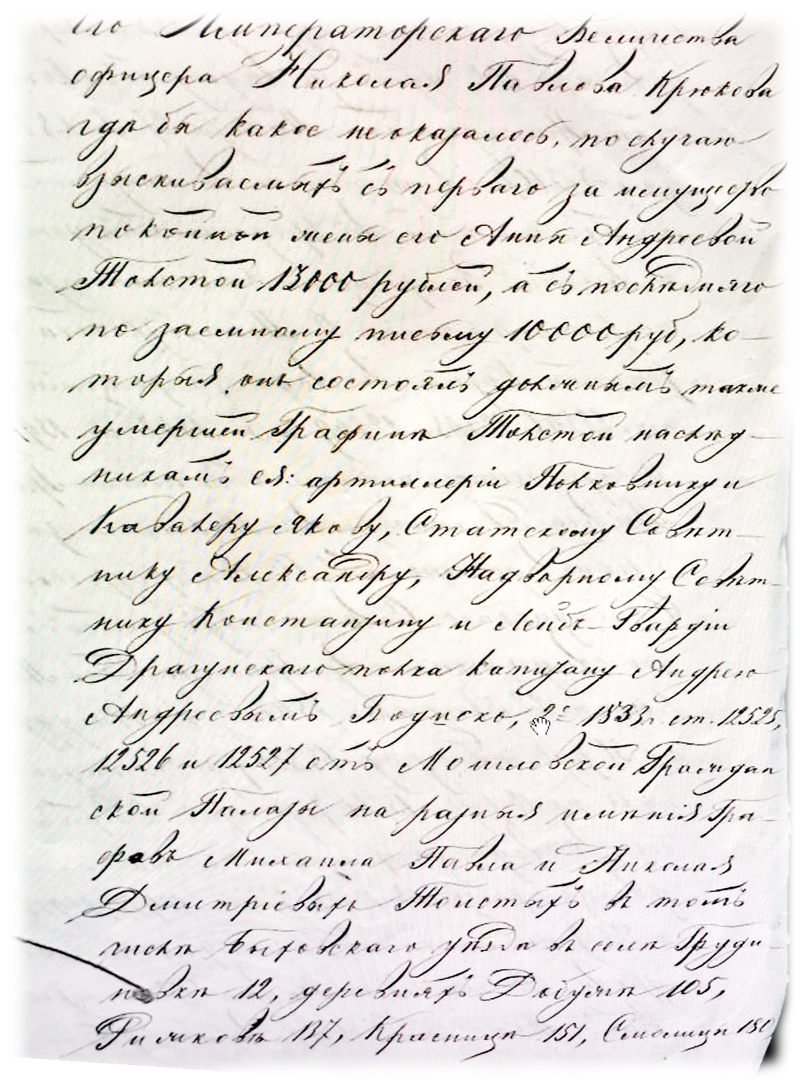 его Императорскаго Величества
офицера Николая Павлова Крюкова
гдѣ бы какое не оказалось, по случаю
взыскиваемыхъ съ перваго за имущество
покойной жены его Анны Андреевой
Толстой 13000 рублей, а съ послѣдняго
по заемному письму 10000 руб, ко-
торыя онъ состоялъ должнымъ также
умершей Графинѣ Толстой наслѣд-
никамъ ея: артиллеріи Полковнику и
Кавалеру Якову, Статскому Совѣт-
нику Александру, Надворному Совѣт-
нику Константину и Лейбъ-Гвардіи
Драгунскаго полка капитану Андрею
Андреевымъ Бодиско, 2е 1833 г. ст. 12525,
12526 и 12527 отъ Могилевской Граждан
ской Палаты на разныя имѣнія Гра-
фовъ Михаила Павла и Николая
Дмитріевыхъ Толстыхъ въ томъ
числѣ Быховскаго уѣзда въ селѣ Груди-
новкѣ 12, деревняхъ Добужѣ 105,
137, Красницѣ 151, Смолицѣ 150